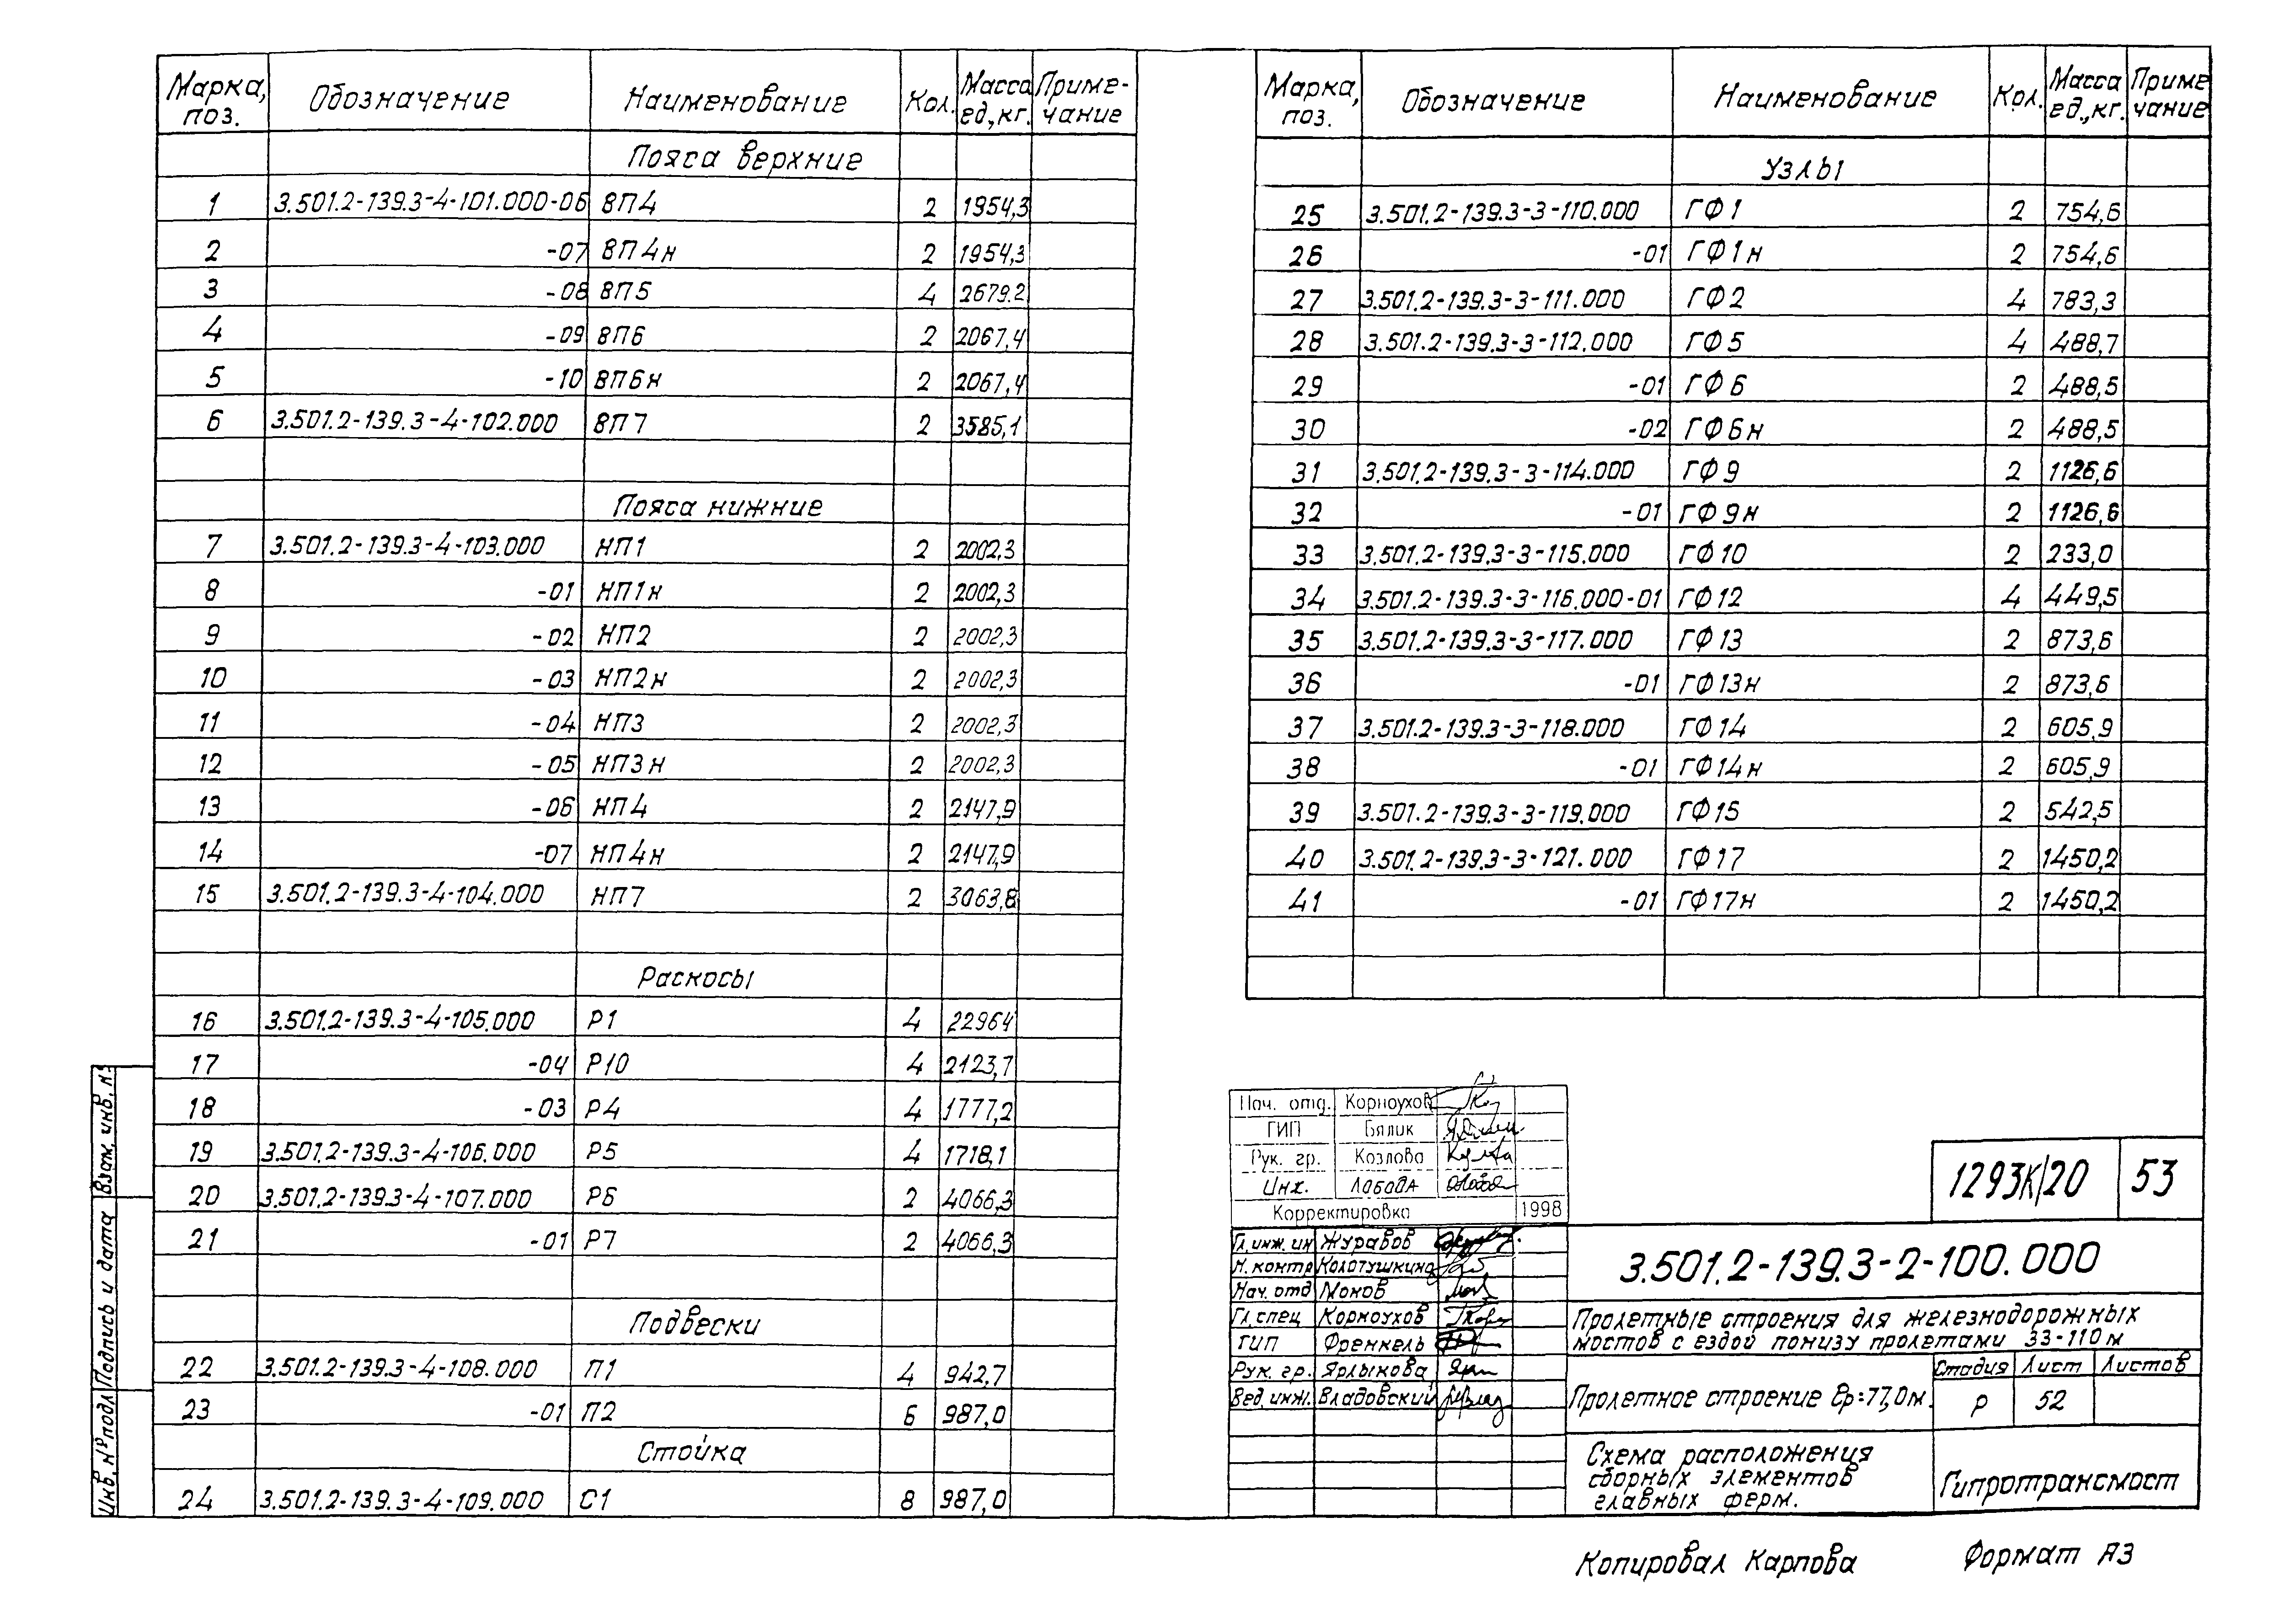 Марка, поз. Обозначение Наименование Кол. Масса ед., кг. Приме- чание
Пояса верхние
1 3.501.2-139.3-4-101.000-06 ВП4 2 1954,3
2 -07 ВП4н 2 1954,3
3 -08 ВП5 4 2679.2
4 -09 ВП6 2 2067,4
5 -10 ВП6н 2 2067,4
6 3.501.2-139.3-4-102.000 ВП7 2 3585,1
Пояса нижние
7 3.501.2-139.3-4-103.000 НП1 2 2002,3
8 -01 НП1н 2 2002,3
9 -02 НП2 2 2002,3
10 -03 НП2н 2 2002,3
11 -04 НП3 2 2002,3
12 -05 НП3н 2 2002,3
13 -06 НП4 2 2147,9
14 -07 НП4н 2 2147,9
15 3.501.2-139.3-4-104.000 НП7 2 3063,8
Раскосы
16 3.501.2-139.3-4-105.000 Р1 4 22964
17 -04 Р10 4 2123,7
18 -03 Р4 4 1777,2
19 3.501.2-139.3-4-106.000 Р5 4 1718,1
20 3.501.2-139.3-4-107.000 Р6 2 4066,3
21 -01 Р7 2 4066,3
Подвески
22 3.501.2-139.3-4-108.000 П1 4 942,7
23 -01 П2 6 987,0
Стойка
24 3.501.2-139.3-4-109.000 С1 8 987,0
Марка, поз. Обозначение Наименование Кол. Масса ед., кг. Приме чание
Узлы
25 3.501.2-139.3-3-110.000 ГФ1 2 754,6
26 -01 ГФ1н 2 754,6
27 3.501.2-139.3-3-111.000 ГФ2 4 783,3
28 3.501.2-139.3-3-112.000 ГФ5 4 488,7
29 -01 ГФ6 2 488,5
30 -02 ГФ6н 2 488,5
31 3.501.2-139.3-3-114.000 ГФ9 2 1126,6
32 -01 ГФ9н 2 1126,6
33 3.501.2-139.3-3-115.000 ГФ10 2 233,0
34 3.501.2-139.3-3-116.000-01 ГФ12 4 449,5
35 3.501.2-139.3-3-117.000 ГФ13 2 873,6
36 -01 ГФ13н 2 873,6
37 3.501.2-139.3-3-118.000 ГФ14 2 605,9
38 -01 ГФ14н 2 605,9
39 3.501.2-139.3-3-119.000 ГФ15 2 542,5
40 3.501.2-139.3-3-121.000 ГФ17 2 1450,2
41 -01 ГФ17н 2 1450,2
Нач. отд. Корноухов
ГИП Бялик
Рук. гр. Козлова
Инж. Лобода
Корректировка 1998
1293К/20 53
Гл.инж.ин Журавов
Н.контр Колотушкина
Нач.отд Монов
Гл.спец Корноухов
ГИП Френкель
Рук. гр. Ярлыкова
Вед.инж. Владовский
3.501.2-139.3-2-100.000
Пролетные строения для железнодорожных
мостов с ездой понизу пролетами 33-110м
Пролетное строение ℓр=77,0м.
Стадия Лист Листов
Р 52
Схема расположения
сборных элементов
главных ферм.
Гипротрансмост
Взам. инв. №
Подпись и дата
Инв. № подл
Копировал Карпова Формат А3